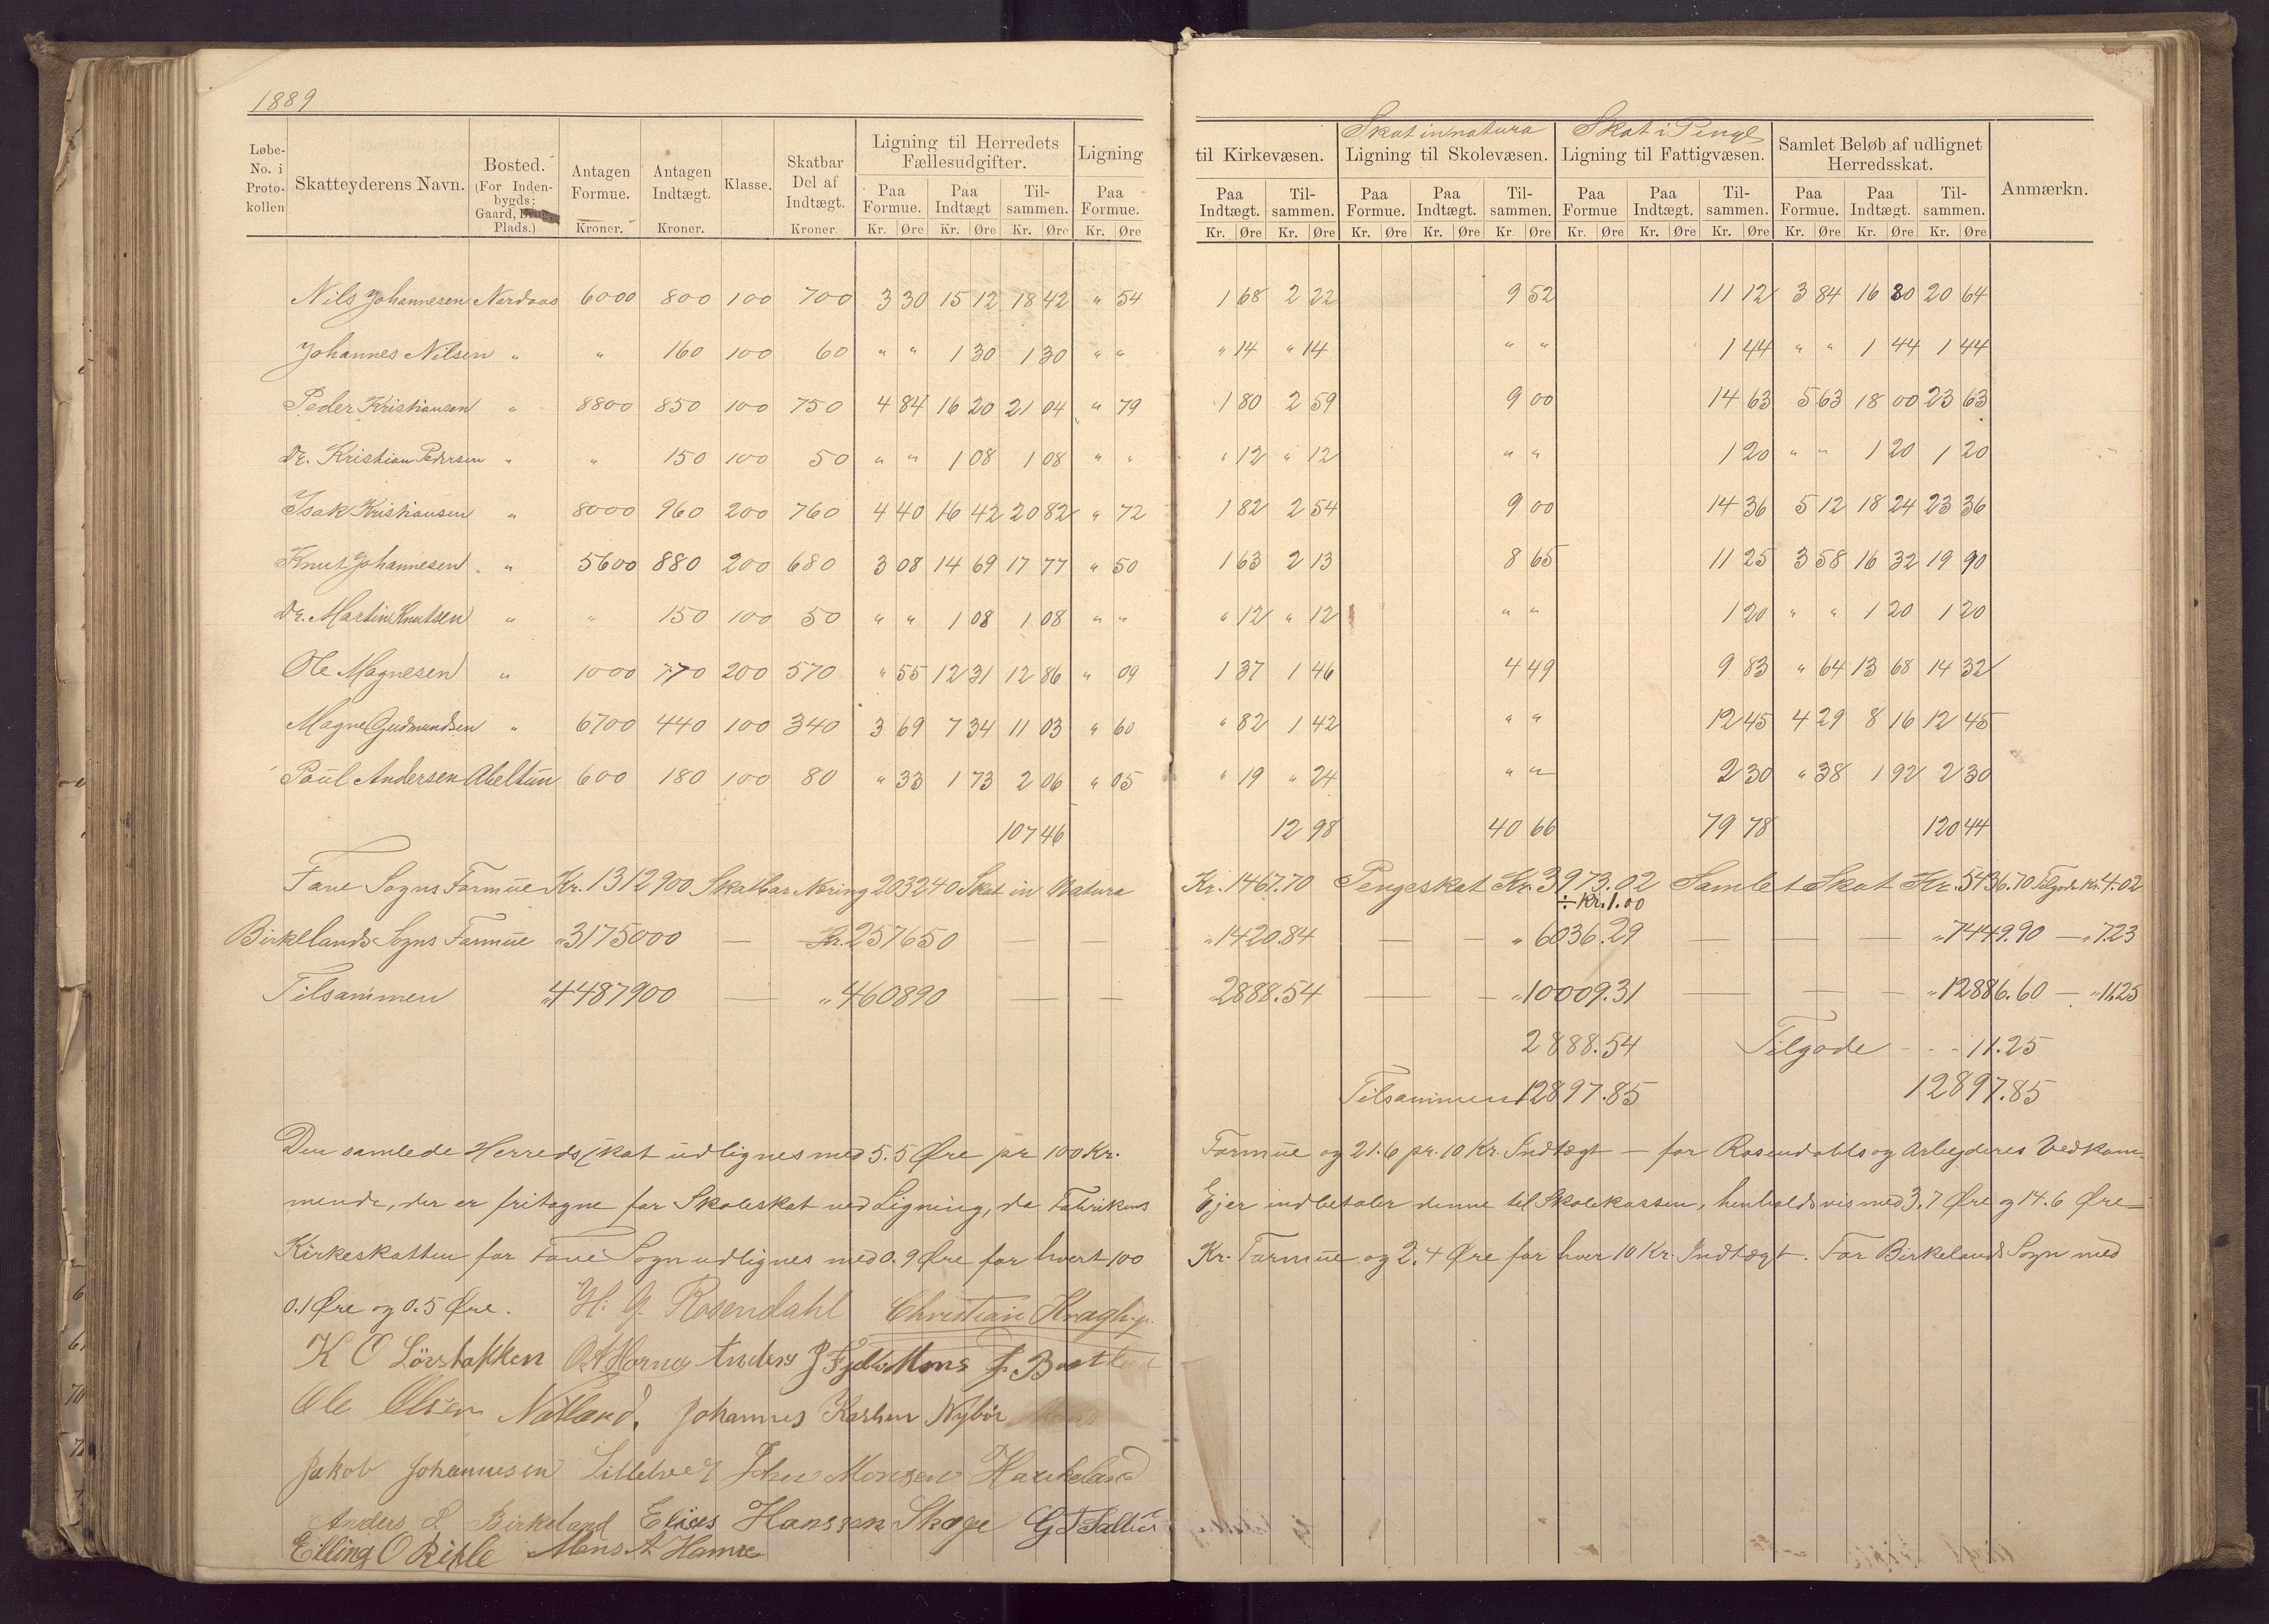 1889
Skat in natura Skat i Penge
Løbe-No. i Proto-kollen Skatteyderens Navn. Bosted. (For Inden-bygds: Gaard, Plads.) Antagen Formue. Kroner. Antagen Indtægt. Kroner. Klasse. Skatbar Del af Indtægt. Kroner. Ligning til Herredets Fællesudgifter. Paa Formue. Kr. Øre Paa Indtægt Kr. Øre Til-sammen. Kr. Øre Ligning Paa Formue. Kr. Øre
til Kirkevæsen. Paa Indtægt. Kr. Øre Til-sammen. Kr. Øre Ligning til Skolevæsen. Paa Formue. Kr. Øre Paa Indtægt. Kr. Øre Til-sammen. Kr. Øre Ligning til Fattigvæsen. Paa Formue Kr. Øre Paa Indtægt. Kr. Øre Til-sammen. Kr. Øre Samlet Beløb af udlignet Herredsskat. Paa Formue. Kr. Øre Paa Indtægt. Kr. Øre Til-sammen. Kr. Øre Anmærkn.
Nils Johannesen Nordaas 6000 800 100 700 3 30 15 12 18 42 " 54 1 68 2 22 9 52 11 12 3 84 16 80 20 64
Johannes Nilsen " " 160 100 60 " " 1 30 1 30 " " " 14 " 14 " " 1 44 " " 1 44 1 44
Peder Kristiansen " 8800 850 100 750 4 84 16 20 21 04 " 79 1 80 2 59 9 00 14 63 5 63 18 00 23 63
Dr. Kristian Pedersen " " 150 100 50 " " 1 08 1 08 " " " 12 " 12 " " 1 20 " " 1 20 1 20
Isak Kristiansen " 8000 960 200 760 4 40 16 42 20 82 " 72 1 82 2 54 9 00 14 36 5 12 18 24 23 36
Knut Johannesen " 5600 880 200 680 3 08 14 69 17 77 " 50 1 63 2 13 8 65 11 25 3 58 16 32 19 90
Dr. Martin Knutsen " " 150 100 50 " " 1 08 1 08 " " " 12 " 12 " " 1 20 " " 1 20 1 20
Ole Magnesen " 1000 770 200 570 " 55 12 31 12 86 " 09 1 37 1 46 4 49 9 83 " 64 13 68 14 32
Magne Gudmundsen " 6700 440 100 340 3 69 7 34 11 03 " 60 " 82 1 42 " " 12 45 4 29 8 16 12 45
Poul Andersen Abeltun 600 180 100 80 " 33 1 73 2 06 " 05 " 19 " 24 " " 2 30 " 38 1 92 2 30
107 46 12 98 40 66 79 78 120 44
Fane Sogns Formue Kr. 1312900 Skatbar Næring 203240 Skat in Natura Kr. 1467.70 Pengeskat Kr. 3973.02 Samlet Skat Kr. 5436.70 Tilgode Kr. 4.02
÷ Kr. 1.00
Birkelands Sogns Formue " 3175000 — Kr. 257650 — — " 1420.84 — — " 6036.29 — — — " 7449.90 — " 7.23
Tilsammen " 4487900 — " 460890 — — " 2888.54 — — " 10009.31 — — — " 12886.60 — " 11.25
2888.54 Tilgode 11.25
Tilsammen 12897.85 12897.85
Den samlede Herredsskat udlignes med 5.5 Øre pr 100 Kr. Formue og 21.6 pr. 10 Kr. Indtægt — for Rosendahls og Arbejderes Vedkom-
mende, der er fritagne for Skoleskat ved Ligning, da Fabrikens Ejer indbetaler denne til Skolekassen, henholdsvis med 3.7 Øre og 14.6 Øre
Kirkeskatten for Fane Sogn udlignes med 0.9 Øre for hvert 100 Kr. Formue og 2.4 Øre for hver 10 Kr. Indtægt. For Birkelands Sogn med
0.1 Øre og 0.5 Øre. H. G. Rosendahl Christian Kragh
K O Lövstakken O. A Horne Anders J Mons J.
Ole Olsen Natland. Johannes Nybö
Jakob Johannesen John Monsen Haukeland
Anders L Birkeland Elias Hanssen Skage
Elling O Mons A Hamre